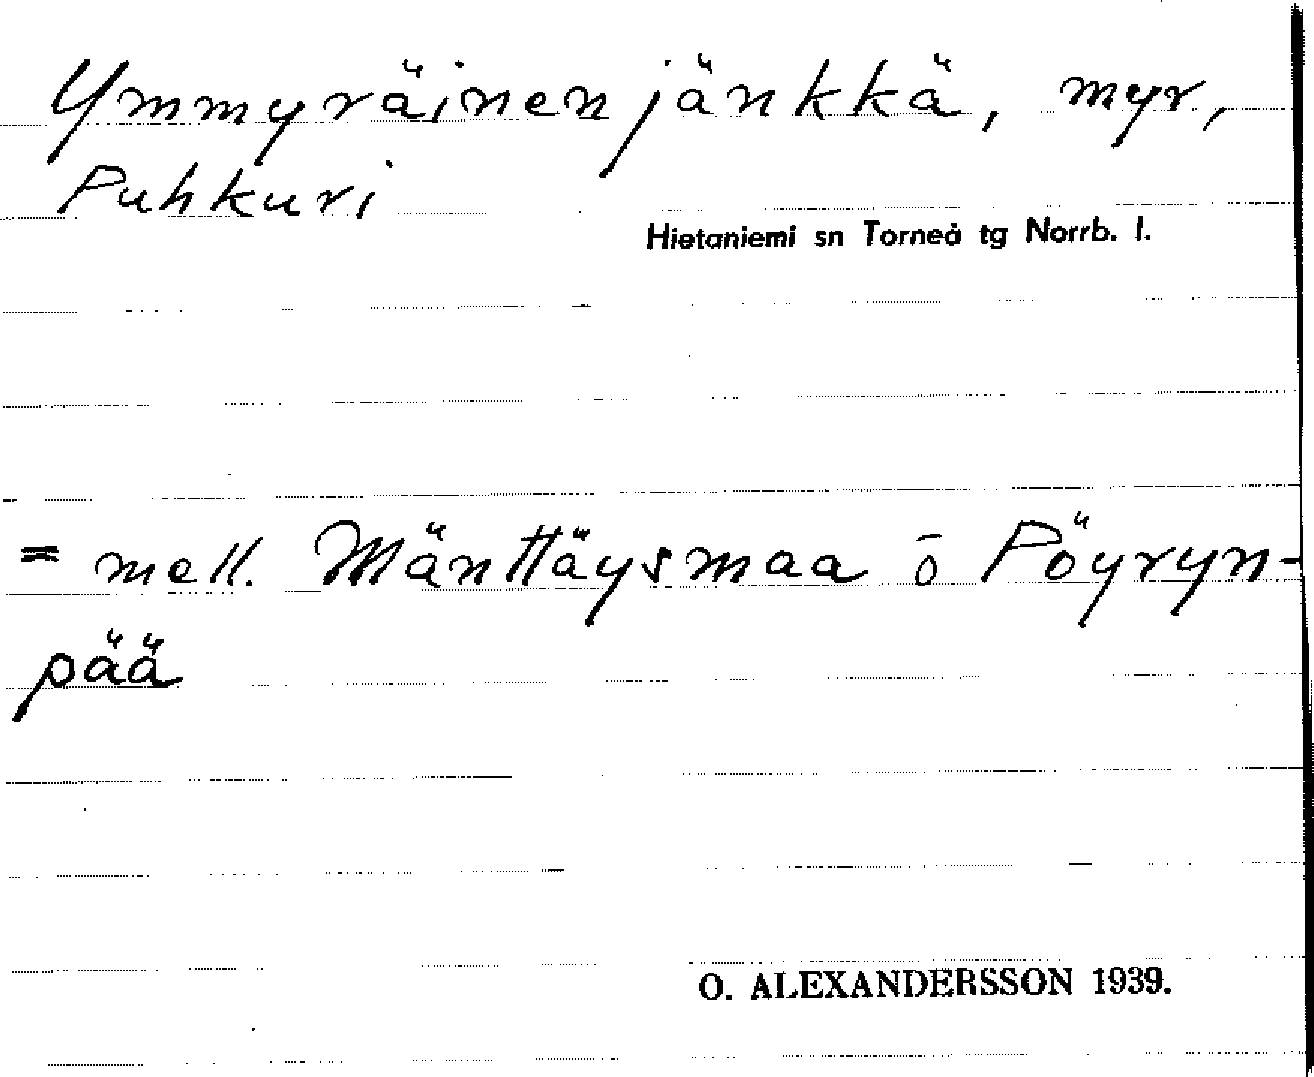 Ymmyräinenjänkkä, myr,
Puhkuri
Hietaniemi sn Torneå tg Norrb. l.
= mell. Mänttäysmaa ō Pöyryn-
pää
O. ALEXANDERSSON 1939.